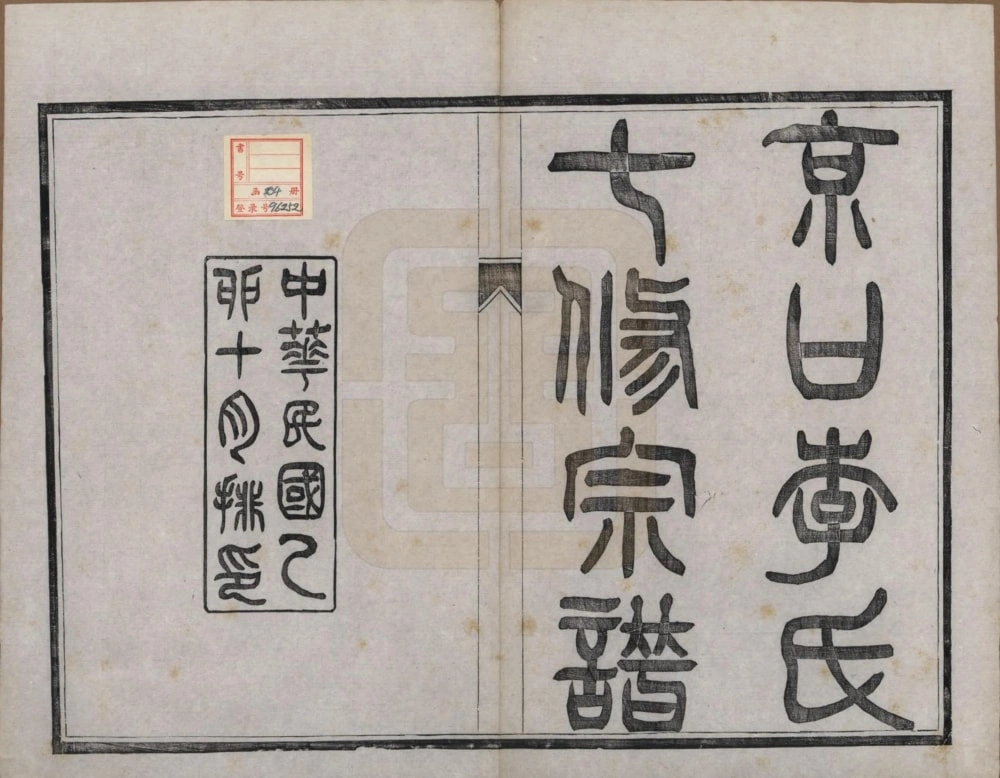 京口李氏
七修宗譜
中華民國乙
卯十月排印
書號
函 册
登录号96252